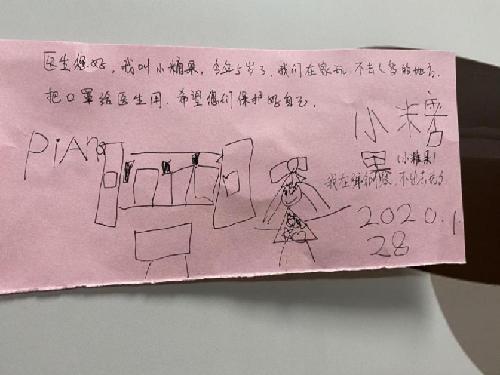 医生您好,我叫小糖果,今年5岁了,我们在家玩,不去人多的地方,
把口罩给医生用,希望您们保护好自己。
PIAN
小糖
果(小糖果)
我在练钢琴,不出去玩
2020.1.
28